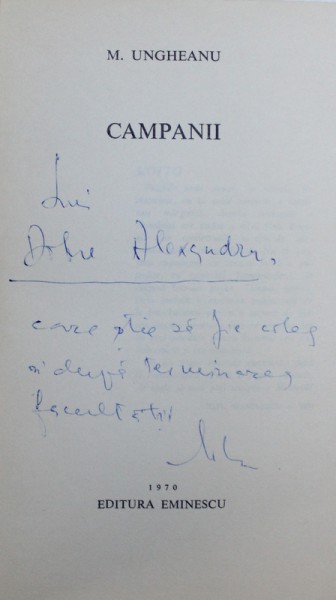 M. UNGHEANU
CAMPANII
Lui
Dobre Alexandru,
care știe să fie coleg
și după terminarea
facultății
1970
EDITURA EMINESCU